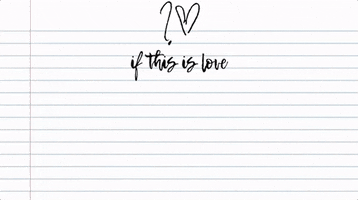 ?♡
if this is love